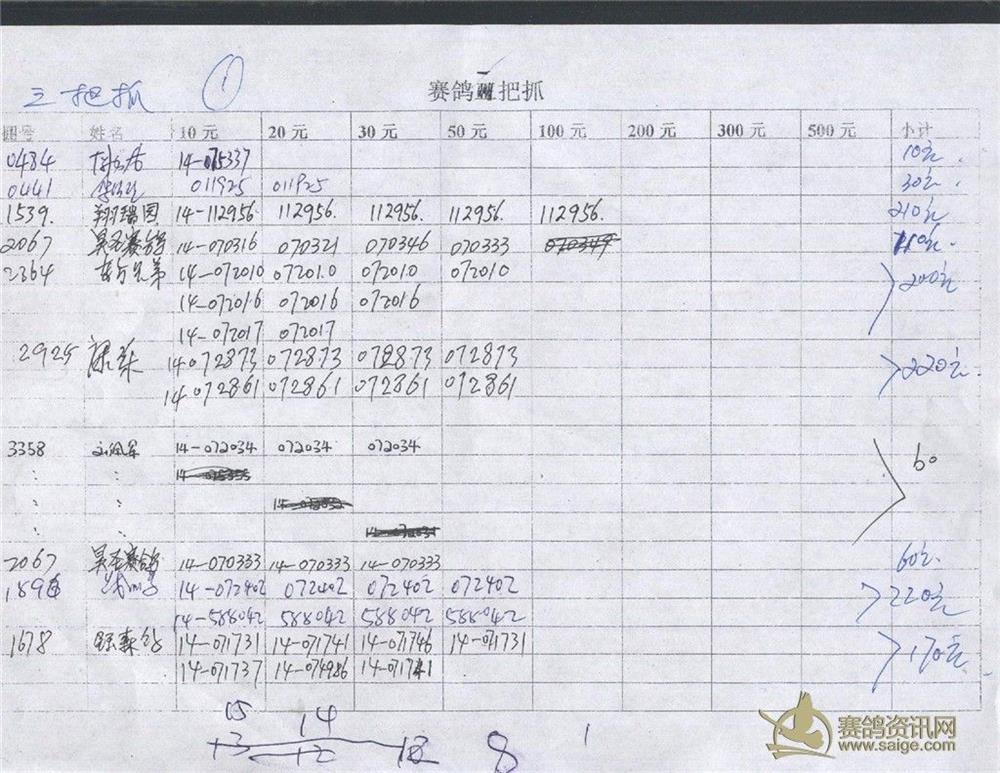 三把抓 ①
赛鸽 把抓
棚号 姓名 10元 20元 30元 50元 100元 200元 300元 500元 小计
0484 14-075337 10元.
0441 011925 011925 30元.
1539. 翔瑞园 14-112956 112956. 112956. 112956. 112956. 210元
2067 昊圣赛鸽 14-070316 070321 070346 070333 070349 110元.
2364 兄弟 14-072010 072010 072010 072010 200元
14-072016 072016 072016
14-072017 072017
2925 14-072873 072873 072873 072873 220元.
14-072861 072861 072861 072861
3358 14-072034 072034 072034 60
2067 昊圣赛鸽 14-070333 14-070333 14-070333 60元.
1896 14-072402 072402 072402 072402 220元
14-588042 588042 588042 588042
1678 14-071731 14-071741 14-071746 14-071731 170元.
14-071737 14-074986 14-071741
15 14
13 12 12 8 1
赛鸽资讯网
www.saige.com